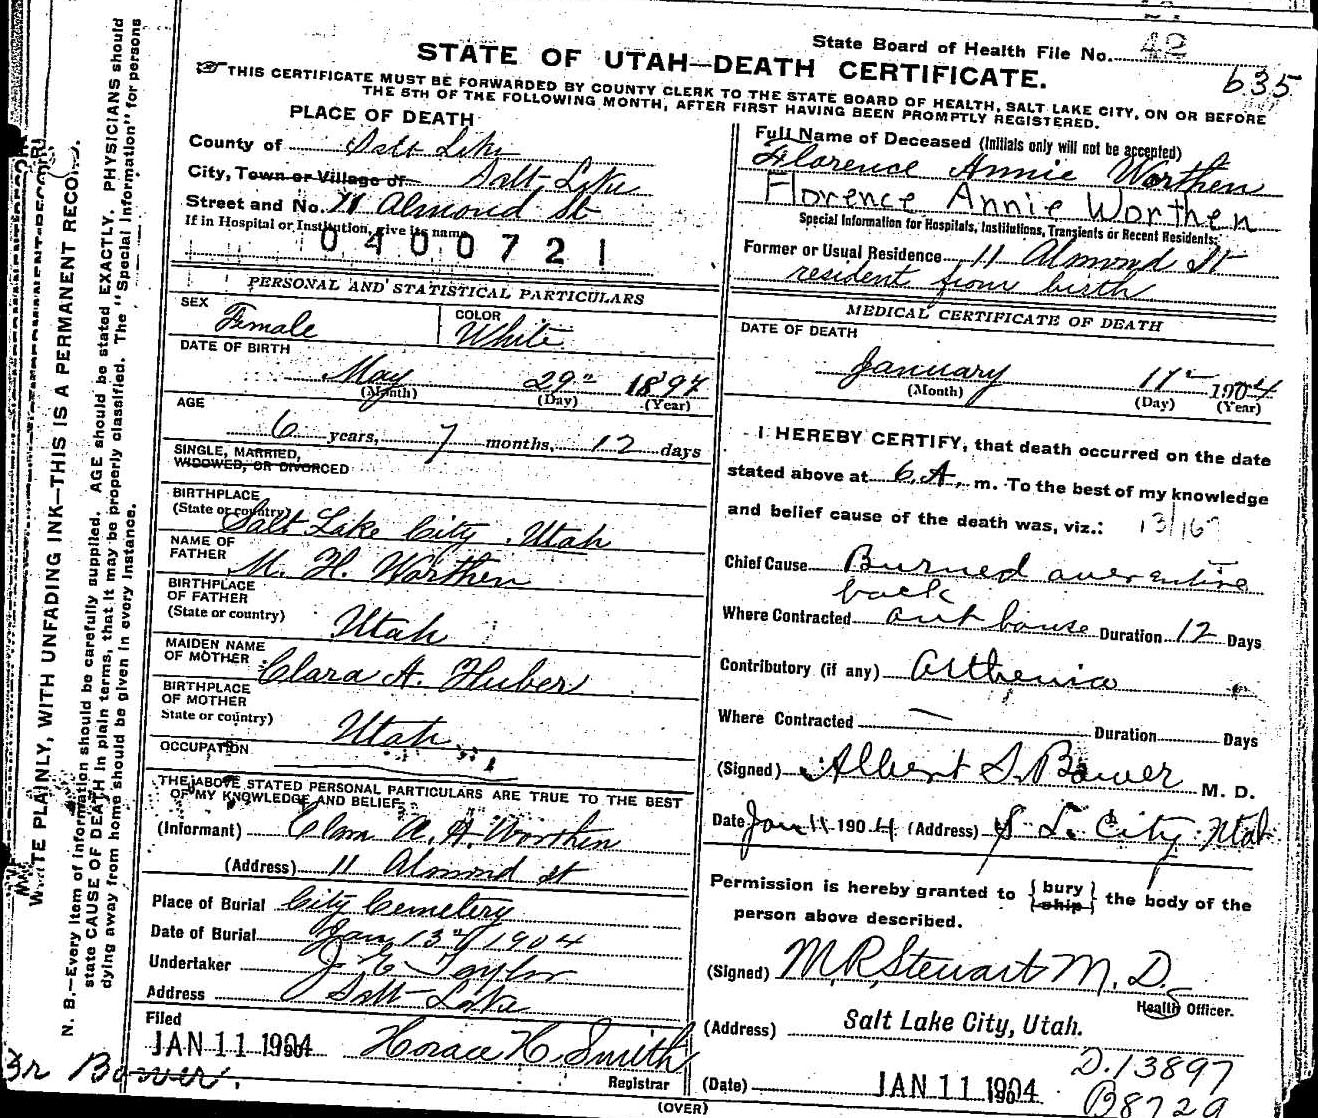 State Board of Health File No. 42
635
STATE OF UTAH—DEATH CERTIFICATE.
THIS CERTIFICATE MUST BE FORWARDED BY COUNTY CLERK TO THE STATE BOARD OF HEALTH, SALT LAKE CITY, ON OR BEFORE
THE 5TH OF THE FOLLOWING MONTH, AFTER FIRST HAVING BEEN PROMPTLY REGISTERED.
PLACE OF DEATH
County of Salt Lake
City, Town or Village of Salt Lake
Street and No. 11 Almond St
If in Hospital or Institution, give its name
0400721
PERSONAL AND STATISTICAL PARTICULARS
SEX Female
COLOR White
DATE OF BIRTH
May 29" 1897
(Month) (Day) (Year)
AGE
6 years, 7 months, 12 days
SINGLE, MARRIED,
WIDOWED, OR DIVORCED
BIRTHPLACE
(State or country) Salt Lake City Utah
NAME OF
FATHER M. H. Worthen
BIRTHPLACE
OF FATHER
(State or country) Utah
MAIDEN NAME
OF MOTHER Clara A. Huber
BIRTHPLACE
OF MOTHER
State or country) Utah
OCCUPATION
THE ABOVE STATED PERSONAL PARTICULARS ARE TRUE TO THE BEST
OF MY KNOWLEDGE AND BELIEF
(Informant) Clara A. H. Worthen
(Address) 11 Almond St
Place of Burial City Cemetery
Date of Burial Jan 13" 1904
Undertaker J E Taylor
Address Salt Lake
Filed
JAN 11 1904 Horace H. Smith
Registrar
Full Name of Deceased (Initials only will not be accepted)
Florence Annie Worthen
Florence Annie Worthen
Special Information for Hospitals, Institutions, Transients or Recent Residents:
Former or Usual Residence 11 Almond St
resident from birth
MEDICAL CERTIFICATE OF DEATH
DATE OF DEATH
January 11" 1904
(Month) (Day) (Year)
I HEREBY CERTIFY, that death occurred on the date
stated above at 6 A. m. To the best of my knowledge
and belief cause of the death was, viz.:
Chief Cause Burned over entire
back
Where Contracted at house Duration 12 Days
Contributory (if any) Asthenia
Where Contracted — Duration Days
(Signed) Albert S. Bower M. D.
Date Jan 11 1904 (Address) S L. City Utah
Permission is hereby granted to { bury ship } the body of the
person above described.
(Signed) M. R. Stewart M. D.
Health Officer.
(Address) Salt Lake City, Utah.
D.13897
(Date) JAN 11 1904
B8729
(OVER)
Dr Bower.
WRITE PLAINLY, WITH UNFADING INK—THIS IS A PERMANENT RECORD.
N. B.—Every item of information should be carefully supplied. AGE should be stated EXACTLY. PHYSICIANS should
state CAUSE OF DEATH in plain terms, that it may be properly classified. The "Special Information" for persons
dying away from home should be given in every instance.